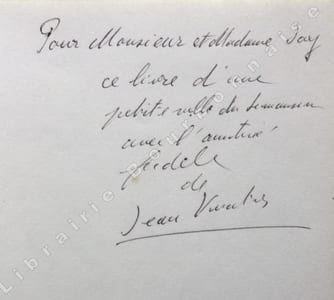 Pour Monsieur et Madame
ce livre d'une
petite ville du
avec l'amitié
fidèle
de
Jean
Librairie Pourbonnaise